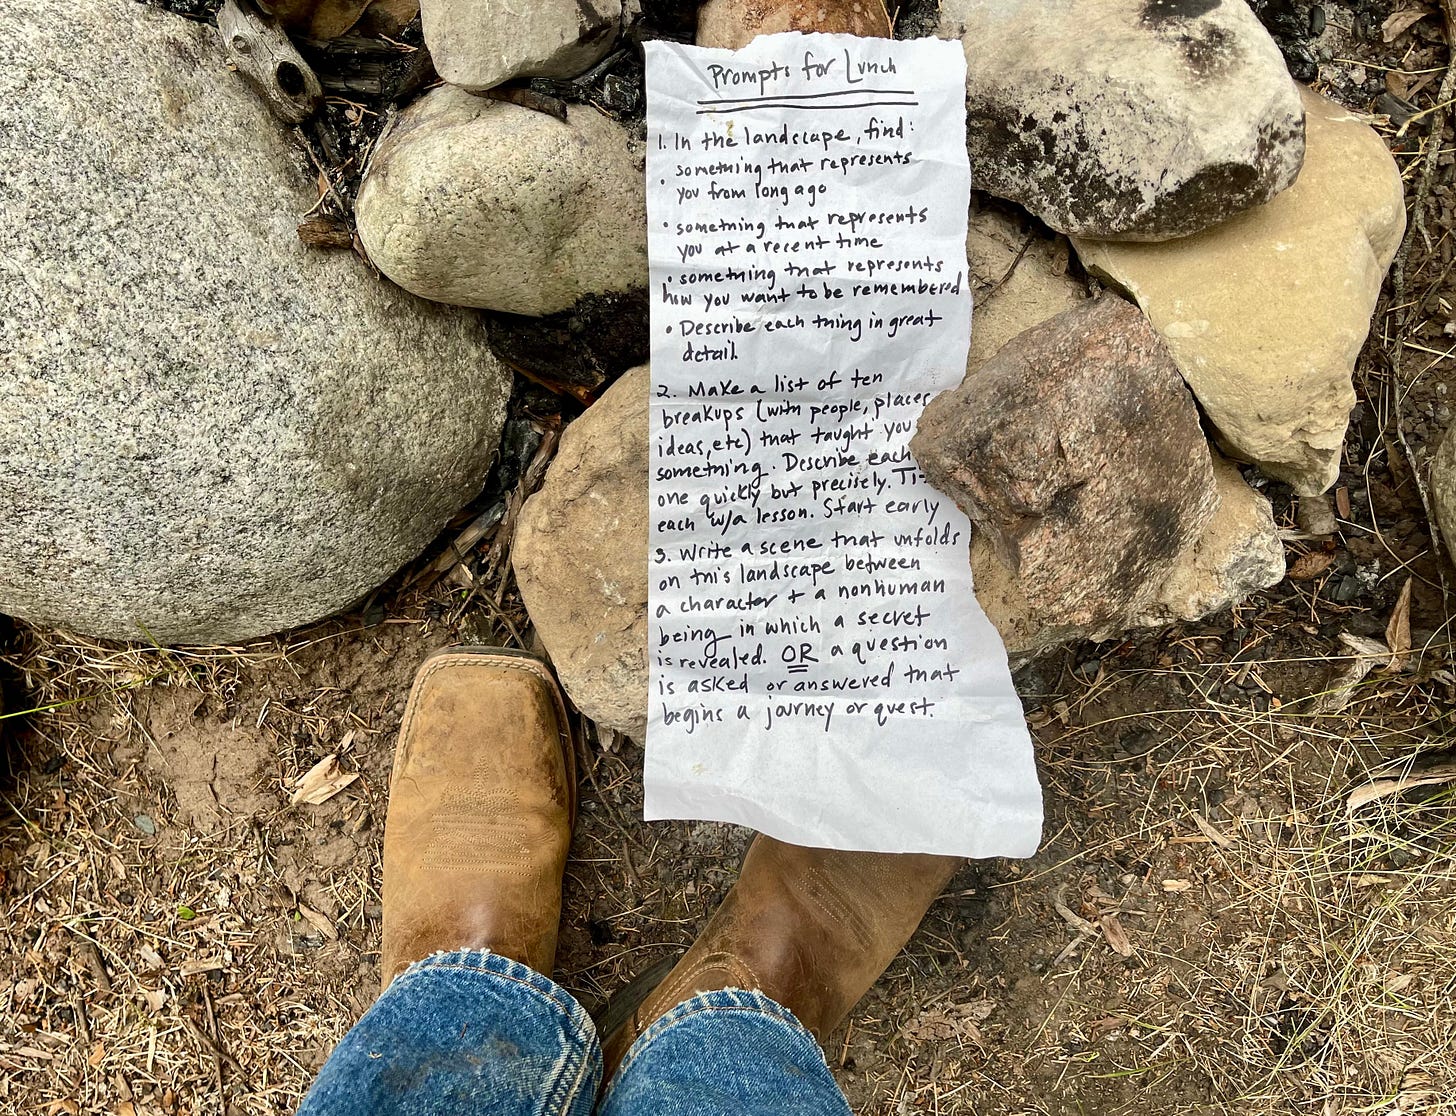 Prompts for Lunch
1. In the landscape, find:
• something that represents
you from long ago
• something that represents
you at a recent time
• something that represents
how you want to be remembered
• Describe each thing in great
detail.
2. Make a list of ten
breakups (with people, places
ideas, etc) that taught you
something. Describe each
one quickly but precisely.
each w/a lesson. Start early
3. Write a scene that unfolds
on this landscape between
a character + a nonhuman
being in which a secret
is revealed. OR a question
is asked or answered that
begins a journey or quest.